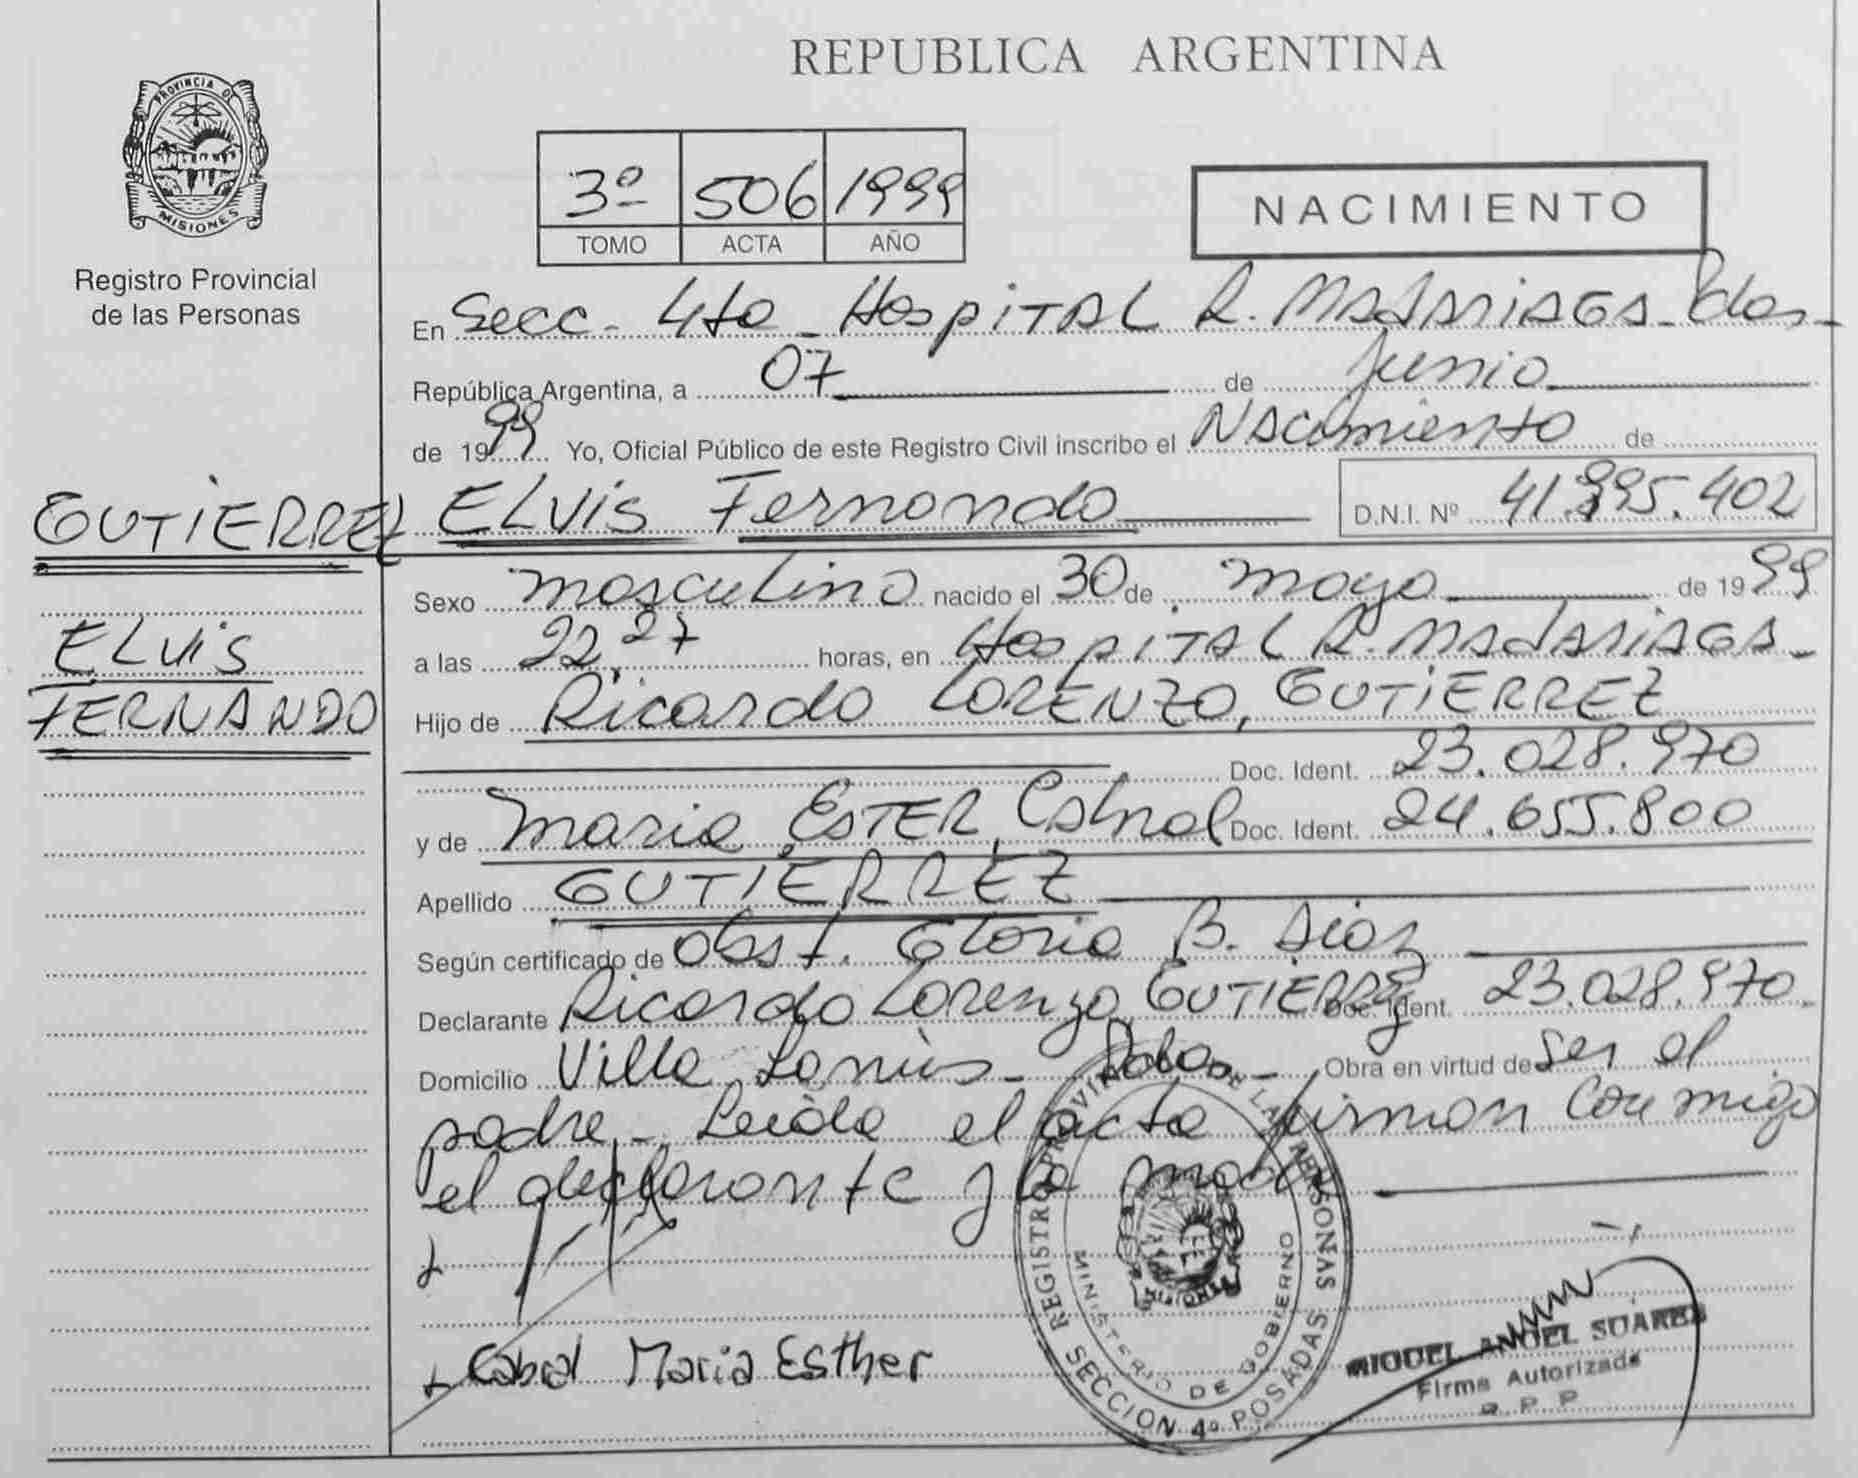 REPUBLICA ARGENTINA
PROVINCIA DE
MISIONES
Registro Provincial
de las Personas
3º 506 1999
TOMO ACTA AÑO
NACIMIENTO
En Secc. 4ta - Hospital R. Madariaga - Pdas -
República Argentina, a 07 de Junio
de 1999 Yo, Oficial Público de este Registro Civil inscribo el Nacimiento de
GUTIERREZ ELVIS Fernando D.N.I. Nº 41.995.402
Sexo masculino nacido el 30 de mayo de 1999
ELVIS
a las 22.27 horas, en Hospital R. Madariaga -
FERNANDO
Hijo de Ricardo LORENZO, GUTIERREZ
Doc. Ident. 23.028.970
y de Maria ESTER, Cabral Doc. Ident. 24.655.800
Apellido GUTIERREZ
Según certificado de Obst. Gloria B. Diaz
Declarante Ricardo Lorenzo GUTIERREZ Doc. Ident. 23.028.970.
Domicilio Villa Lanús - Pdas - Obra en virtud de ser el
padre - Leída el acta firman conmigo
el declarante y la madre
Cabral Maria Esther
REGISTRO PROVINCIAL DE LAS PERSONAS
MINISTERIO DE GOBIERNO
SECCION 4º POSADAS
MIGUEL ANGEL SUAREZ
Firma Autorizada
R. P. P.